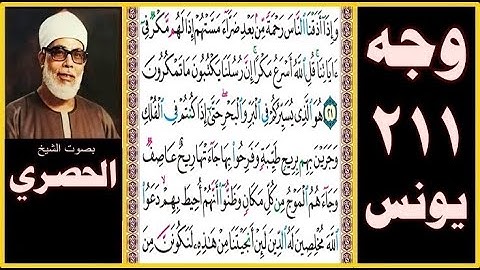 وجه
٢١١
يونس
بصوت الشيخ
الحصري
وَإِذَا أَذَقْنَا النَّاسَ رَحْمَةً مِّن بَعْدِ ضَرَّاءَ مَسَّتْهُمْ إِذَا لَهُم مَّكْرٌ فِي
ءَايَاتِنَا قُلِ اللَّهُ أَسْرَعُ مَكْرًا إِنَّ رُسُلَنَا يَكْتُبُونَ مَا تَمْكُرُونَ
٢١ هُوَ الَّذِي يُسَيِّرُكُمْ فِي الْبَرِّ وَالْبَحْرِ حَتَّى إِذَا كُنتُمْ فِي الْفُلْكِ
وَجَرَيْنَ بِهِم بِرِيحٍ طَيِّبَةٍ وَفَرِحُوا بِهَا جَاءَتْهَا رِيحٌ عَاصِفٌ
وَجَاءَهُمُ الْمَوْجُ مِن كُلِّ مَكَانٍ وَظَنُّوا أَنَّهُمْ أُحِيطَ بِهِمْ دَعَوُا
اللَّهَ مُخْلِصِينَ لَهُ الدِّينَ لَئِنْ أَنجَيْتَنَا مِنْ هَذِهِ لَنَكُونَنَّ مِنَ